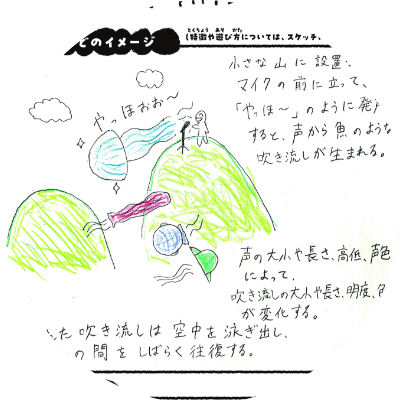 どのイメージ
(特徴や遊び方については、スケッチ、
とくちょう あそ かた
小さな山に設置、
マイクの前に立って、
「やっほ〜」のように発
すると、声から魚のような
吹き流しが生まれる。
やっほおぉ〜
声の大小や長さ、高低、声色
によって、
吹き流しの大小や長さ、明度、色
が変化する。
た吹き流しは空中を泳ぎ出し、
の間をしばらく往復する。